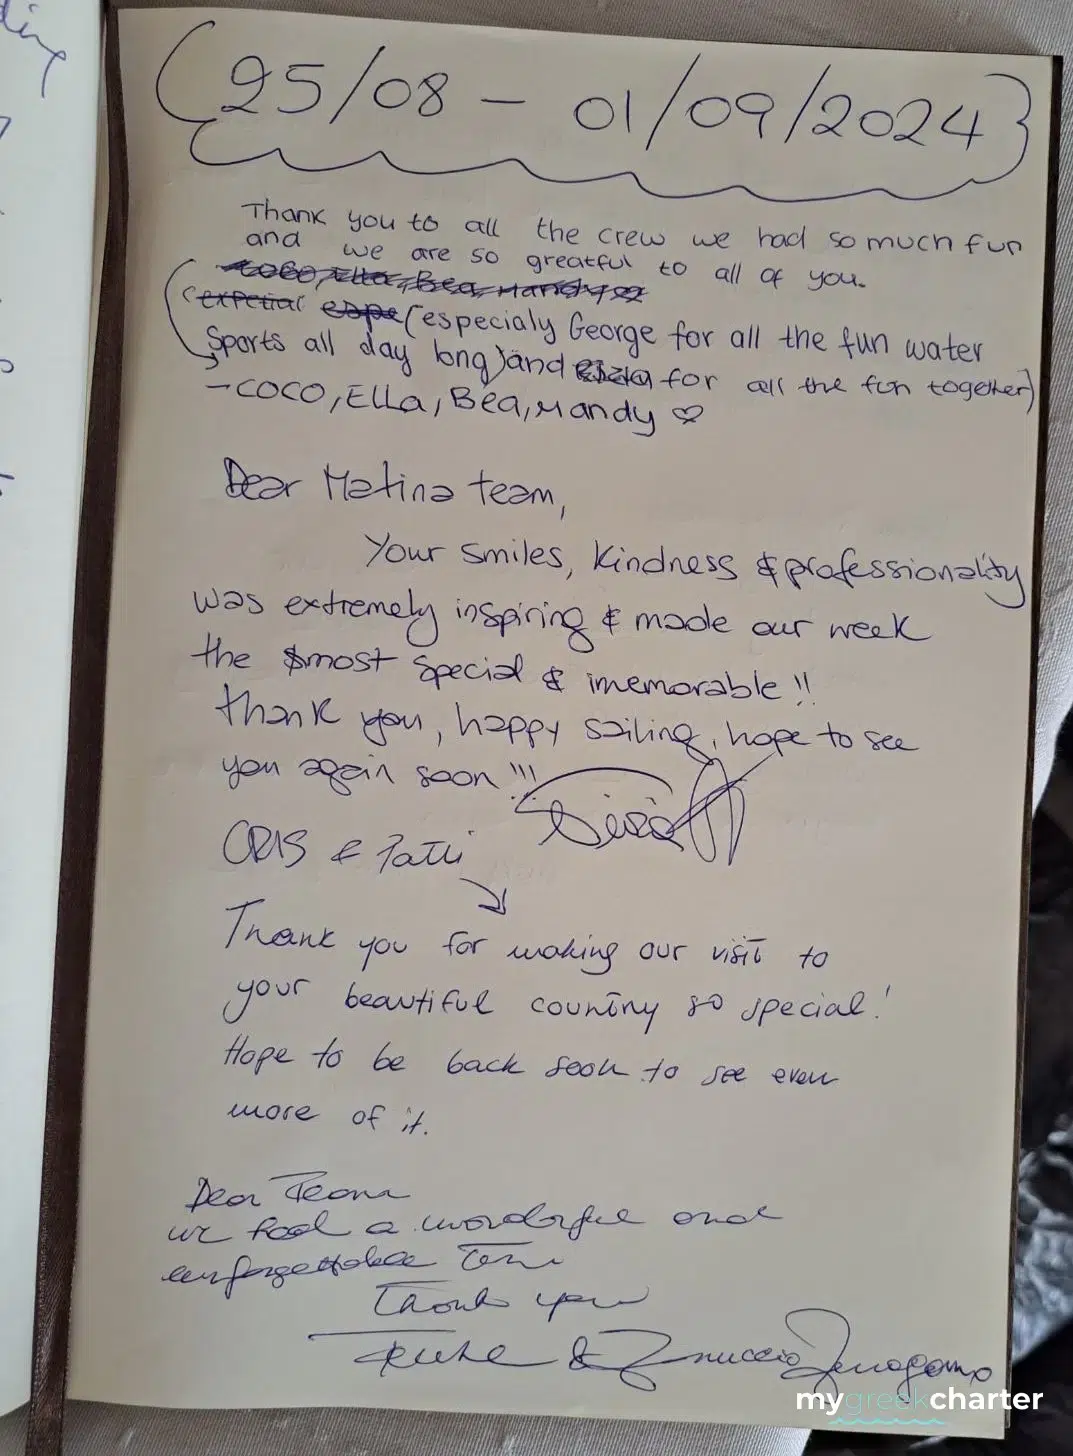 ding
(25/08 - 01/09/2024}
Thank you to all the crew we had so much fun
and we are so greatful to all of you.
Coco, Ella, Bea, Mandy
(expetial espe (especialy George for all the fun water
Sports all day long) and for all the fun together)
- COCO, Ella, Bea, Mandy ♡
Dear Matina team,
Your smiles, kindness & professionality
was extremely inspiring & made our week
the most special & imemorable!!
thank you, happy sailing, hope to see
you again soon!!!
CRIS & Patti
Thank you for making our visit to
your beautiful country so special!
Hope to be back soon to see even
more of it.
Dear Team
we had a wonderful and
unforgettable Time
Thank you
&
mygreekcharter